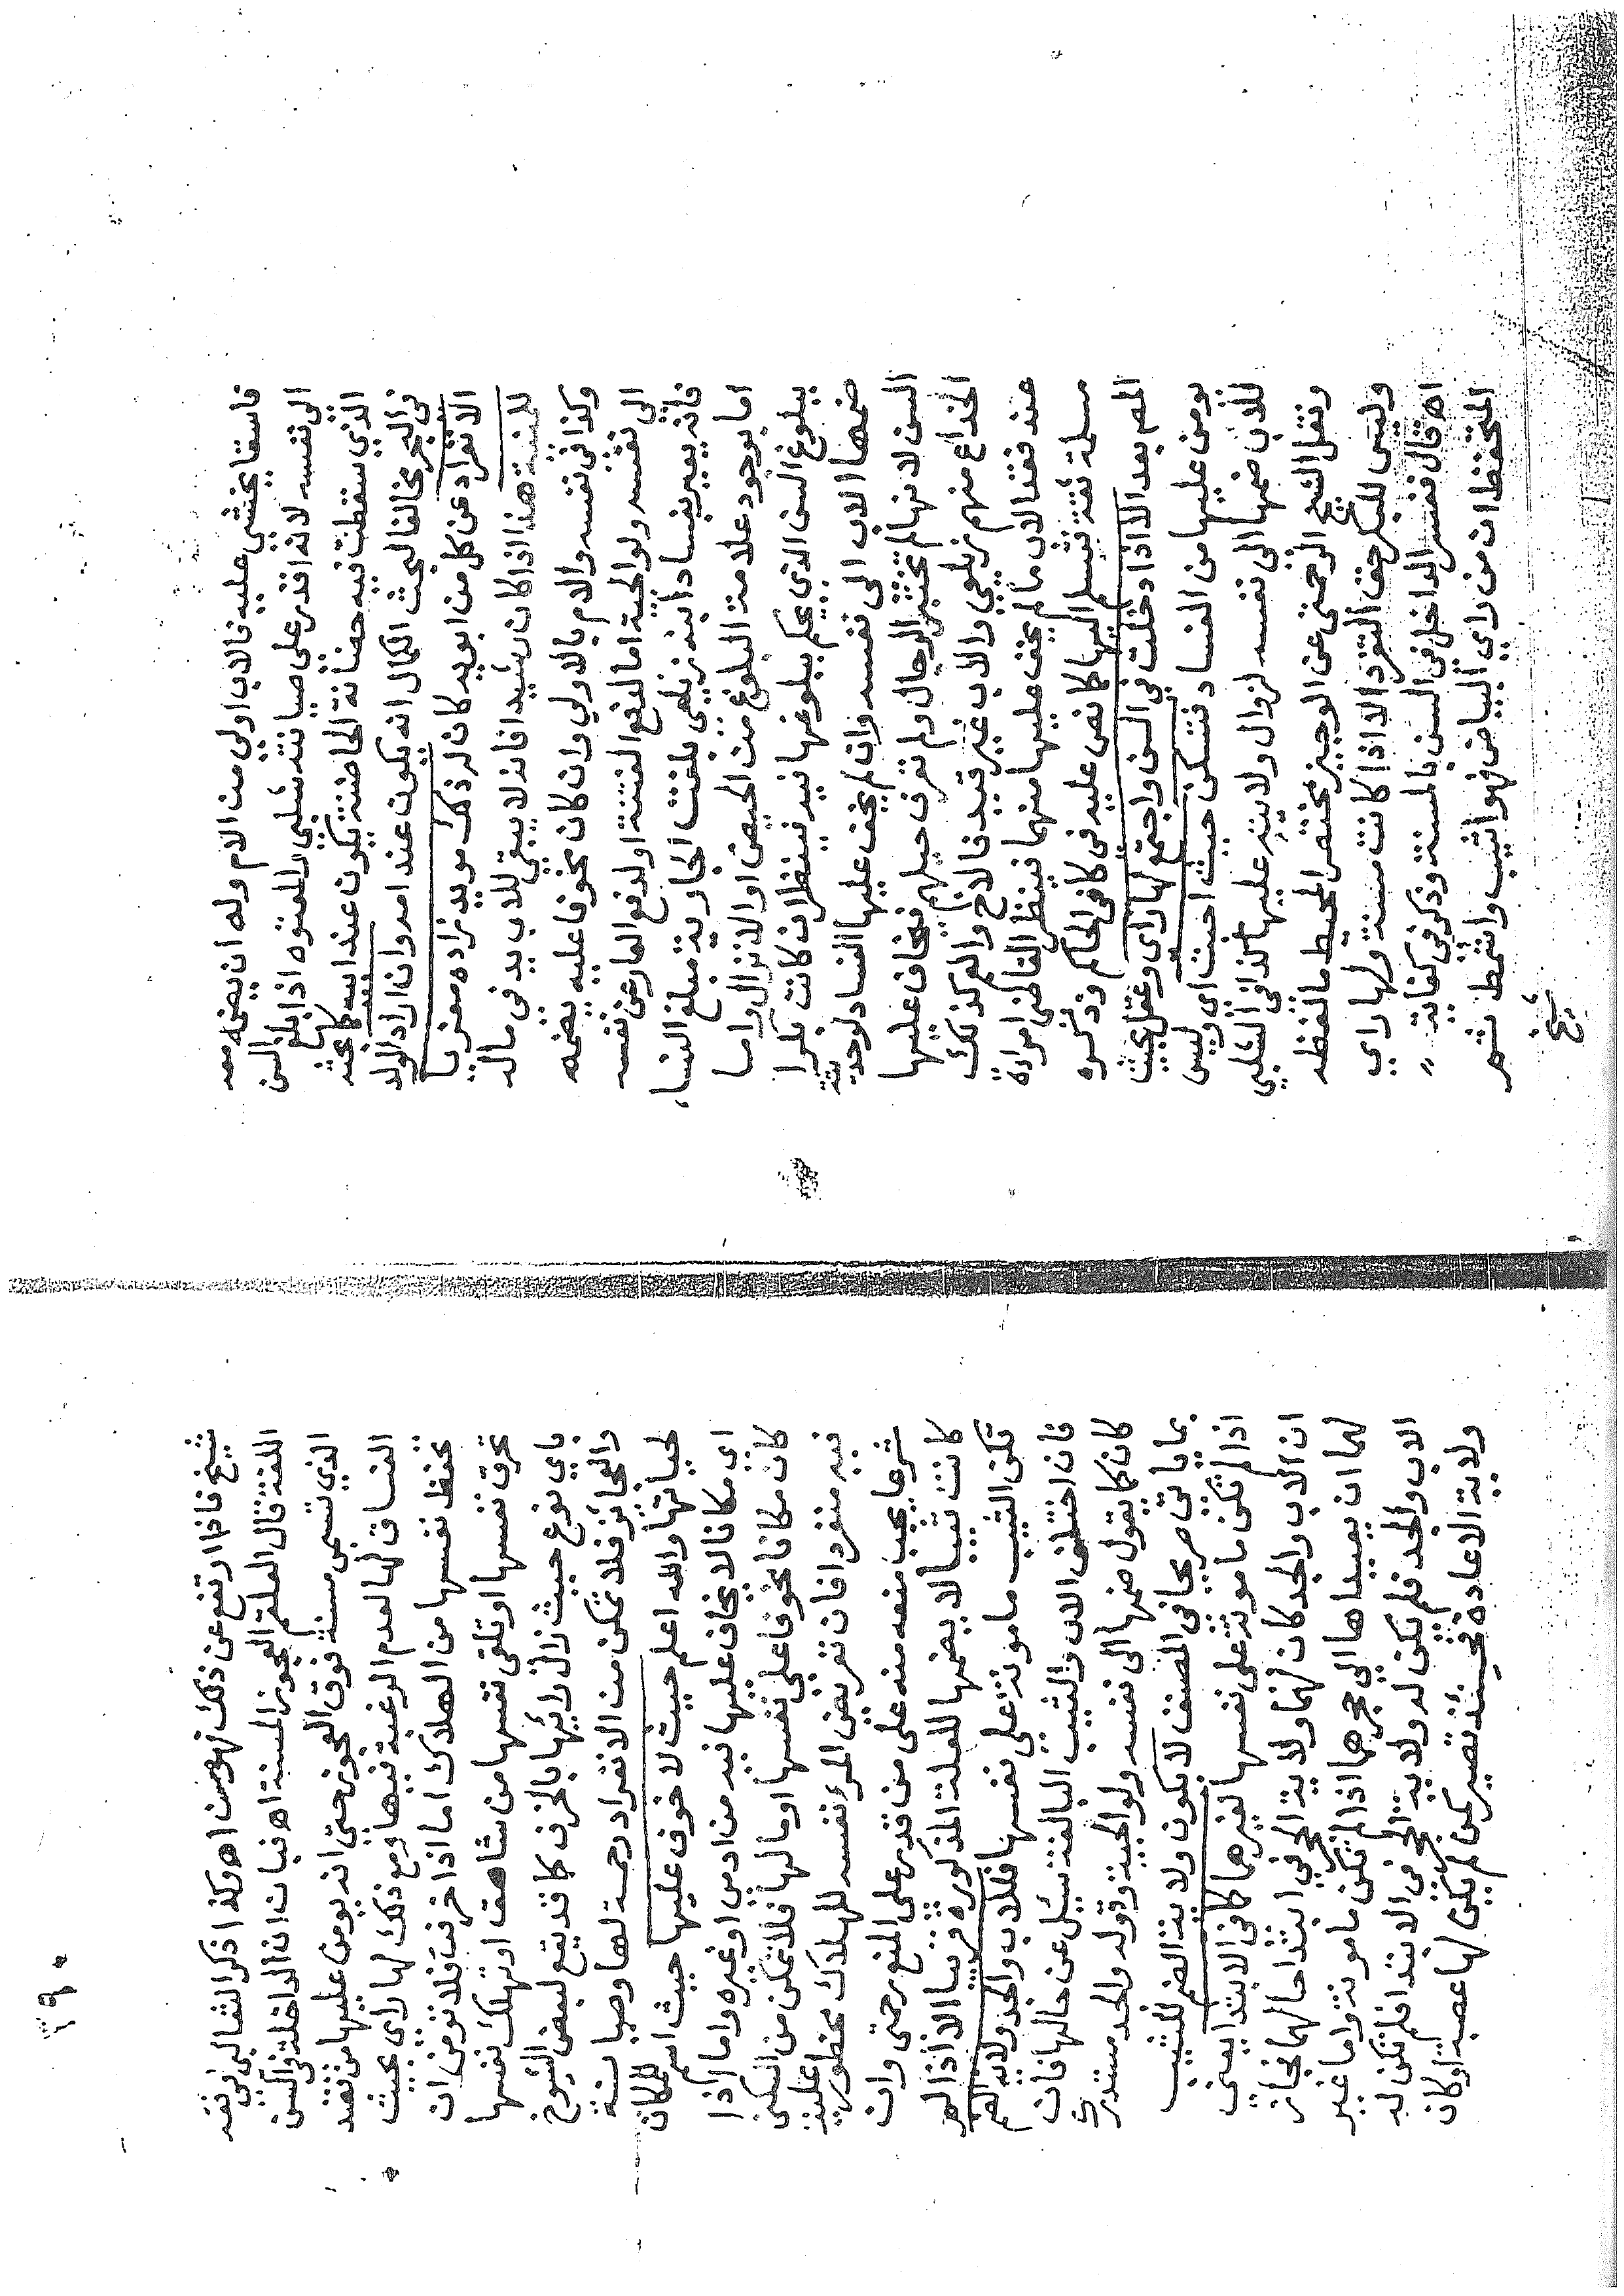 فاسقا يخشي عليه فالاب اولي من الام وله ان يضمه معه
الي نفسه لانه اقدر علي صيانته شلبي والمعتوه اذا بلغ السن
الذي سقطت فيه حضانة الحاضنة يكون عند ابيه كما بحثه
في البحر مخالفا لبحث الكمال انه يكون عند امه وان اراد الولد
الانفراد عن كل من ابويه كان له ذلك مويد زاده معزيا
للمنية هذا اذا كان رشيدا فانه لا يبقي للاب يد في ماله
وكذا في نفسه والام بالاولي وان كان مخوفا عليه يضمه
الي نفسه ولو الجية اما لدفع الفتنة او لدفع العار عن نفسه
فانه يعير بفساد ابنه زيلعي بلغت الجارية مبلغ النساء
اما بوجود علامة البلوغ من الحيض او الانزال واما
ببلوغ السن الذي يحكم ببلوغها فيه فينظر ان كانت بكرا
ضمها الاب الي نفسه وان لم يخف عليها الفساد لوحديثة
السن لانها لم تختبر الرجال ولم تعرف حيلهم فيخاف عليها
الخداع منهم زيلعي والاب غير قيد فالاخ والعم كذلك
عند فقد الاب ما لم يخف عليها منهما فينظر القاضي امراة
مسلمة ثقة فتسلم اليها كما نص عليه في كافي الحاكم وذكره
المص بعد الا اذا دخلت في السن واجتمع لها راي وعقل بحيث
يومن عليها من الفساد فتسكن حيث احبت اي وليس
للاب ضمها الي نفسه لزوال ولايته عليها كذا في الشلبي
ونقل الشيخ الرحمتي عن الوجيز مختصر المحيط ما لفظه
وليس للبكر حق التفرد الا اذا كانت مسنة ولها راي
اه قال ففسر الداخل في السن بالمسنة وذكر في كفاية
المتحفظ ان من راي البياض فهو اشيب واشمط ثم
شيخ
٢٩٠
شيخ فاذا ارتفع عن ذلك فهو مسن اه وكذا ذكر الثعالبي في فقه
اللغة قال العلقم العجوز المسنة اه فبان ان الداخلة في السن
الذي تسمي مسنة فوق العجوز حتي انه يومن عليها من تقصد
الفساق لها لعدم الرغبة فيها ومع ذلك لها راي بحيث
تحفظ نفسها من الهلاك اما اذا خرفت فلا تومن ان
تحرق نفسها او تلقي نفسها من شاهق او تهلك نفسها
باي نوع حيث زال رائيها بالخرف كما قد يقع لبعض الشيوخ
والعجائز فلا تمكن من الانفراد رحمة لها وصيانة
لحياتها والله اعلم حيث لا خوف عليها حيث اسم للمكان
اي مكانا لا يخاف عليها فيه من ادمي او غيره واما اذا
كان مكانا مخوفا علي نفسها او مالها فلا تمكن من السكني
فيه منفردا فان تعريض المرء نفسه للهلاك محظور عليه
شرعا يجب منعه منه علي من قدر علي المنع رحمتي وان
كانت ثيبا لا يضمها للعلة المذكورة في ثيبا الا اذا لم
تكن الثيب مامونة علي نفسها فللاب والجد ولاية الضم
فان اختلف الاب والثيب البالغة يسئل عن حالها فان
كان كما يقول ضمها الي نفسه ولو الجية وقوله والجد مستدرك
بما ياتي صريحا في المصنف لا يكون ولاية الضم للثيب
اذا لم تكن مامونة علي نفسها لغيرهما كما في الابتدا يعني
ان الاب والجد كان لهما ولاية الحجر في ابتدا حالهما فجاز
لهما ان يعيداها الي حجرهما اذا لم تكن مامونة واما غير
الاب والجد فلم تكن له ولاية الحجر في الابتدا فلم تكن له
ولاية الاعادة فحينئذ تصير كمن لم يكن لها عصبة او كان